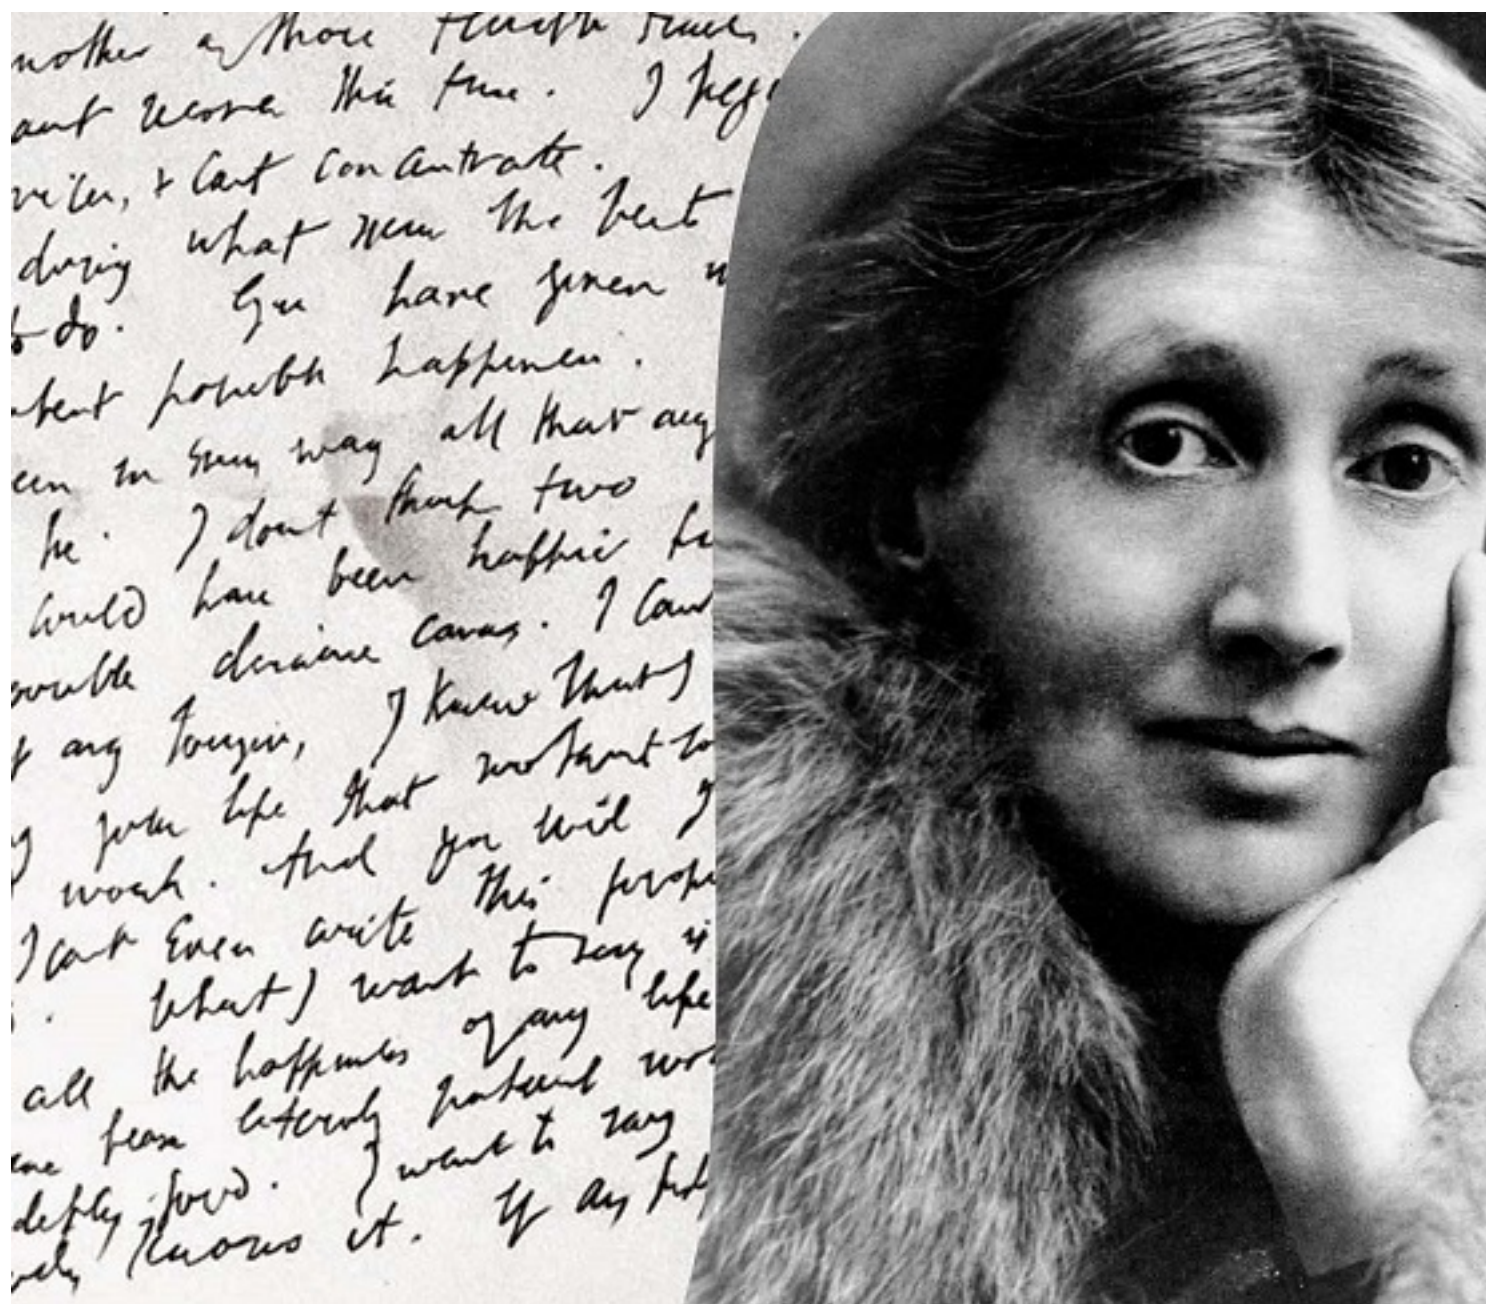 nother of those terrible times.
cant recover this time. I beg
voices, & cant concentrate.
doing what seems the best
to do. You have given
atest possible happiness.
een in every way all that any
be. I dont think two
could have been happier
terrible disease came. I cant
it any longer, I know that I
your life that without
work. And you will
I cant even write this prope
What I want to say is
all the happiness of my life
have been entirely patient
good. I want to say
knows it. If any